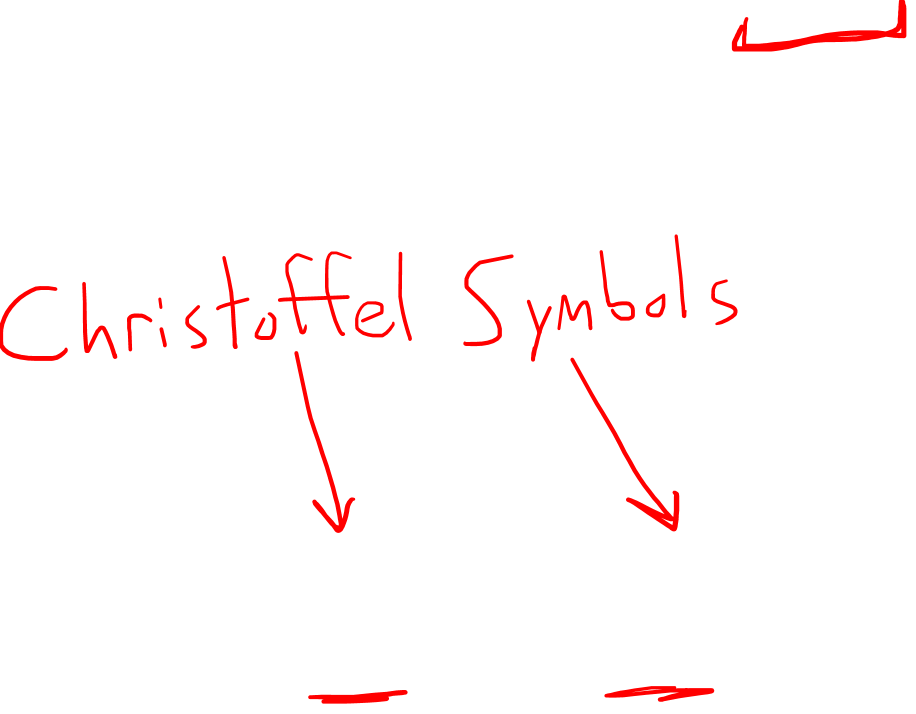 Christoffel Symbols